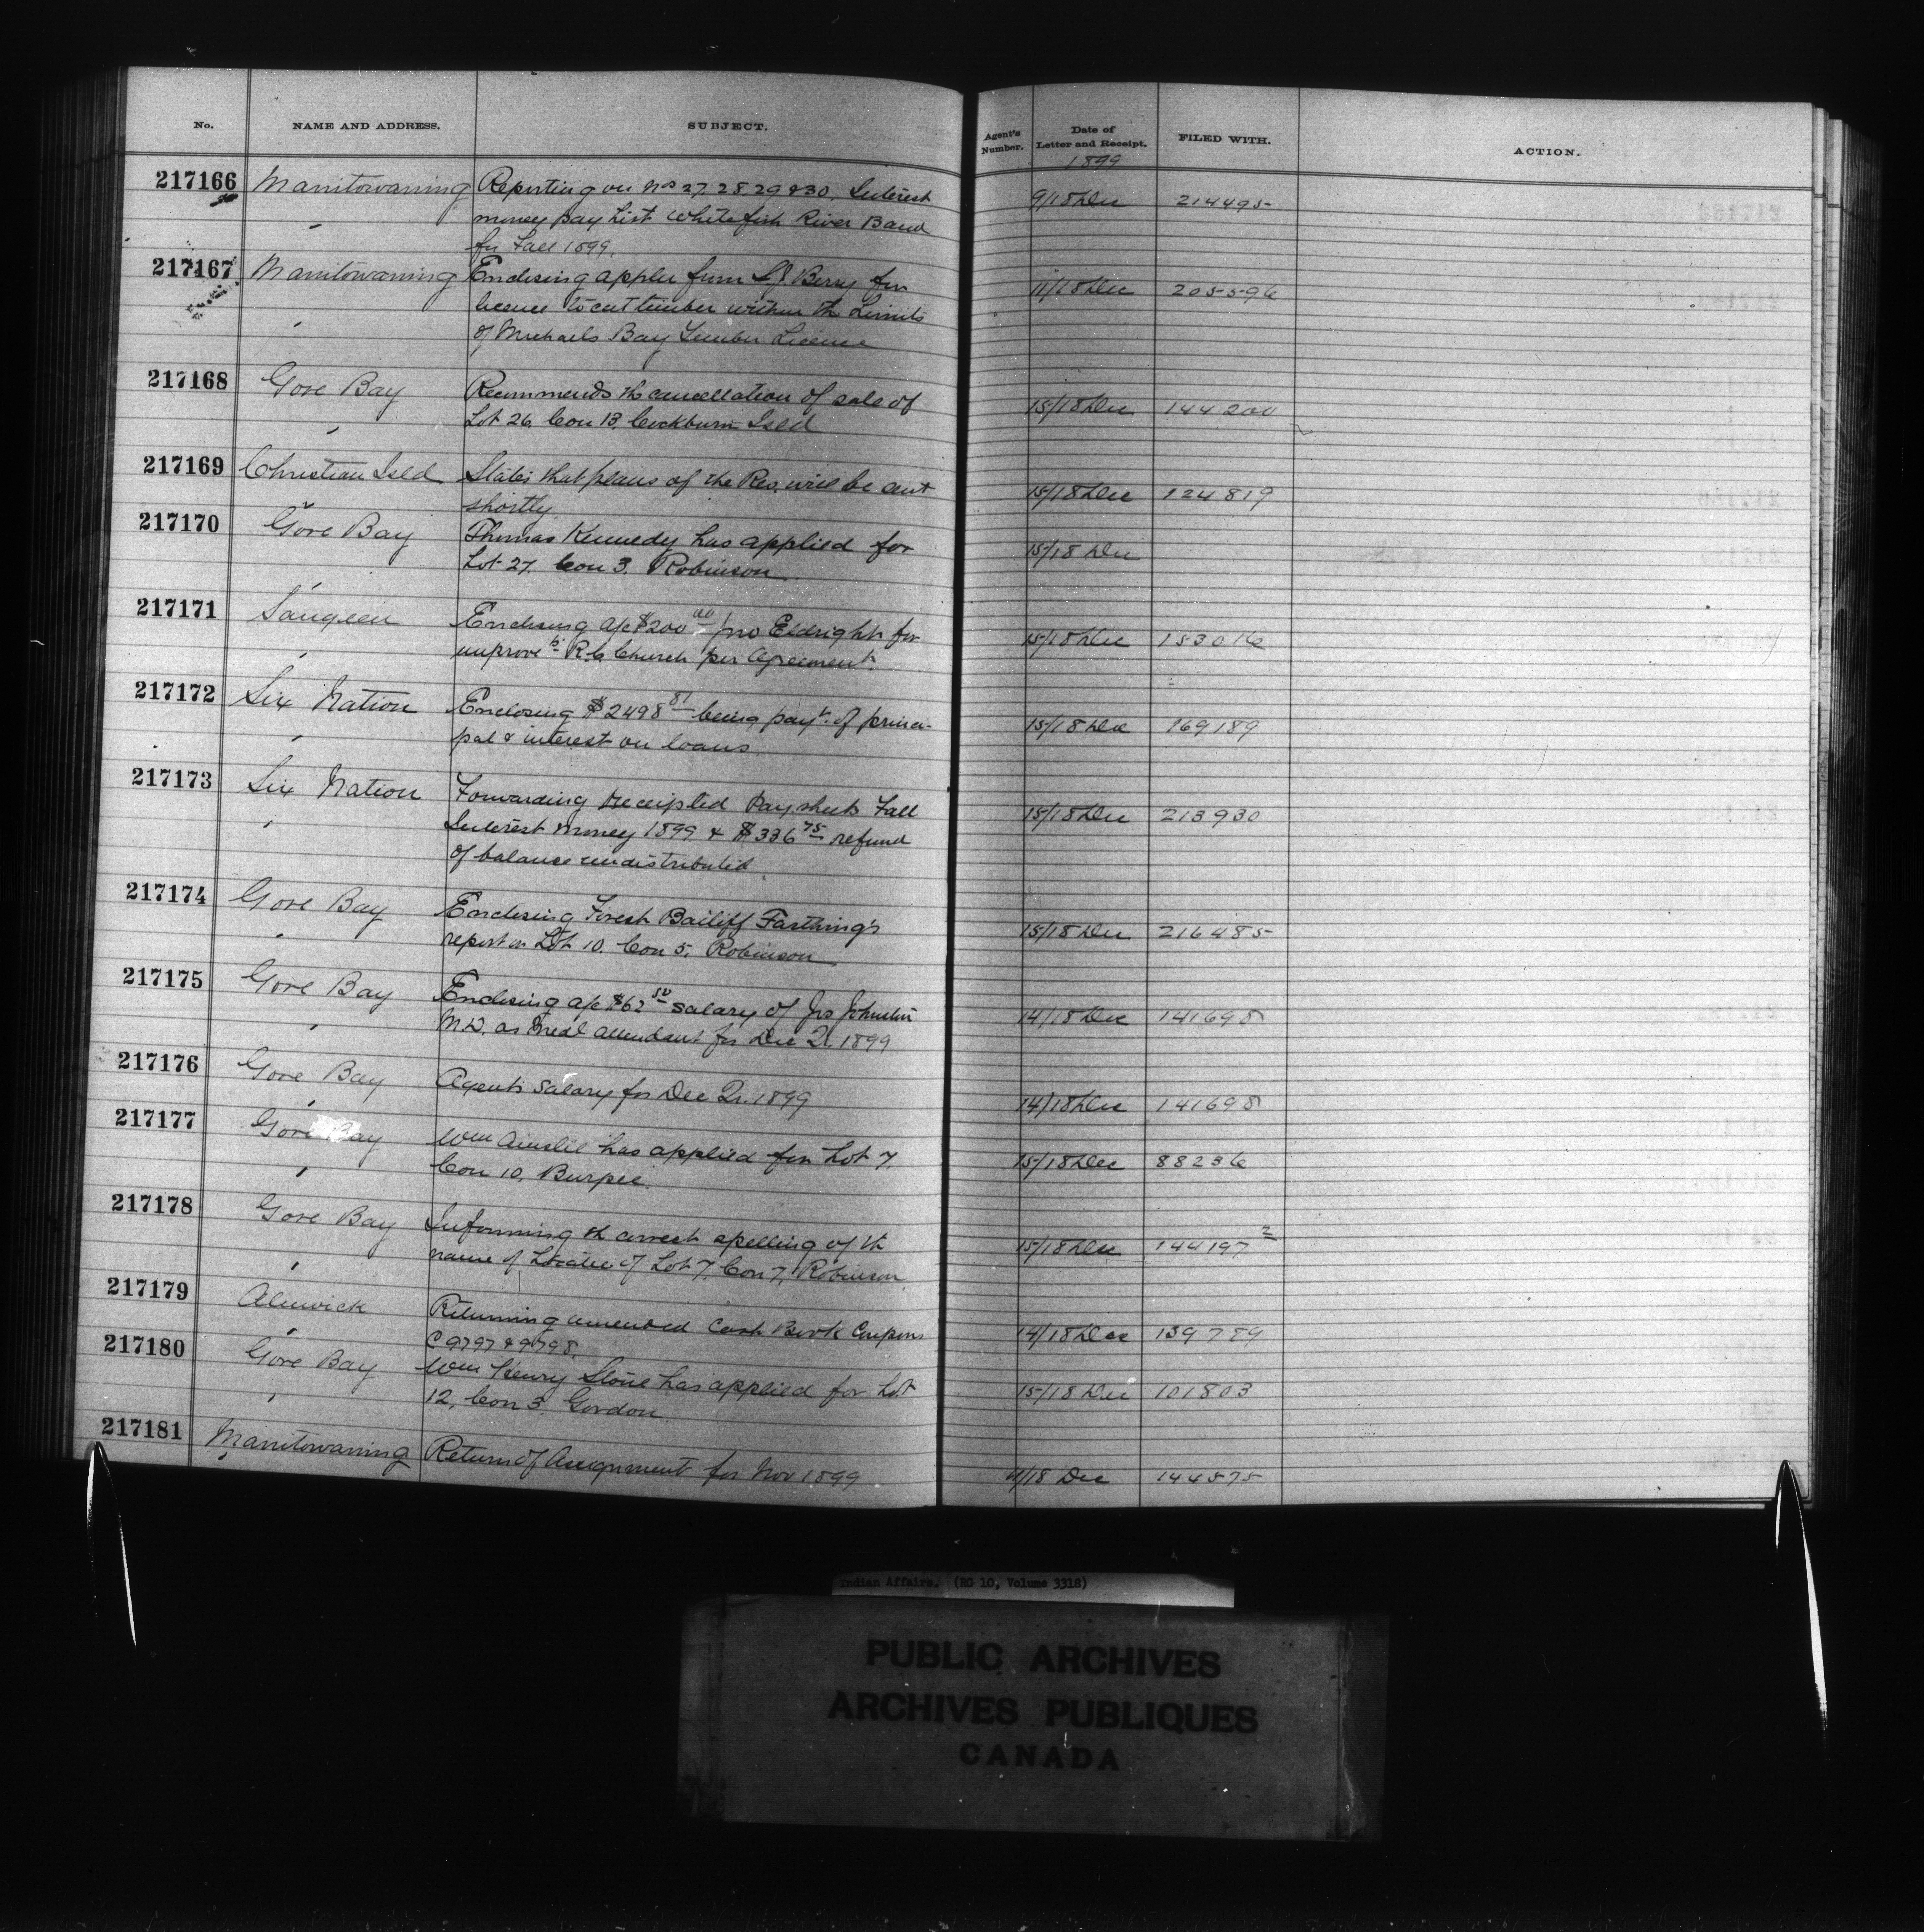 No. NAME AND ADDRESS. SUBJECT. Agent's Number. Date of Letter and Receipt. FILED WITH. ACTION.
1899
217166 Manitowaning Reporting on Nos 27. 28. 29 & 30. Interest 9/18 Dec 214495
money pay List Whitefish River Band
for Fall 1899.
217167 Manitowaning Enclosing appln from Berry for 11/18 Dec 205596
licence to cut timber within the Limits
of Michaels Bay Timber Licence
217168 Gore Bay Recommends the cancellation of sale of 15/18 Dec 144200
Lot 26. Con 13. Cockburn Isld
217169 Christian Isld States that plans of the Res. will be sent 15/18 Dec 124819
shortly
217170 Gore Bay Thomas Kennedy has applied for 15/18 Dec
Lot 27. Con 3. Robinson
217171 Saugeen Enclosing a/c $200 00 Jno Eldright for 15/18 Dec 153016
improvets R.C. Church per Agreement.
217172 Six Nation Enclosing $2498 81 being payt. of princi- 15/18 Dec 169189
pal & interest on loans
217173 Six Nation Forwarding receipted Paysheets Fall 15/18 Dec 213930
Interest money 1899 & $336 75 refund
of balance undistributed.
217174 Gore Bay Enclosing Forest Bailiff Farthing's 15/18 Dec 216485
report on Lot 10. Con 5. Robinson
217175 Gore Bay Enclosing a/c $62 50 salary of Jno Johnston 14/18 Dec 141698
M.D. as Medl attendant for Dec Qr. 1899
217176 Gore Bay Agents salary for Dec Qr. 1899 14/18 Dec 141698
217177 Gore Bay Wm Ainslie has applied for Lot 7. 15/18 Dec 88236
Con 10. Burpee.
217178 Gore Bay Informing th correct spelling of th 15/18 Dec 144197 2
name of Locatee of Lot 7. Con 7, Robinson
217179 Alnwick Returning amended Cash Book Coupons 14/18 Dec 139789
C 9797 & 9798.
217180 Gore Bay Wm Henry Stone has applied for Lot 15/18 Dec 101803
12, Con 3. Gordon.
217181 Manitowaning Return of Assignment for Nov 1899 11/18 Dec 144575
Indian Affairs. (RG 10, Volume 3318)
PUBLIC ARCHIVES
ARCHIVES PUBLIQUES
CANADA